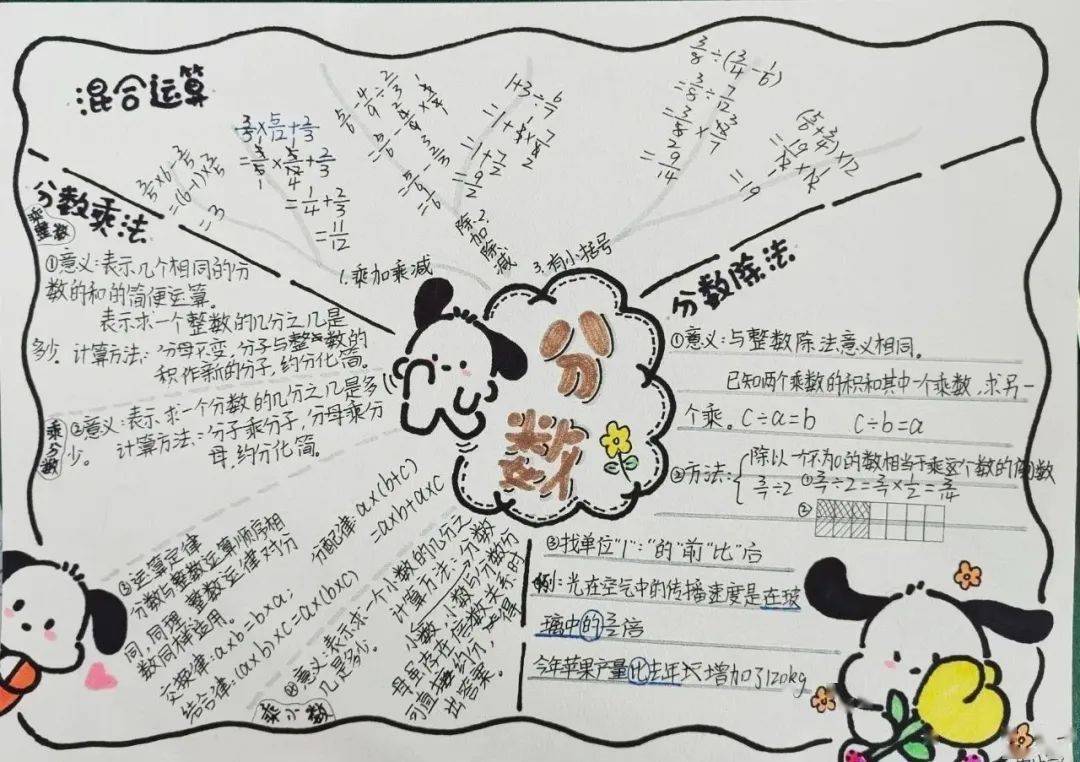 混合运算
3/5×6-3/5
=(6-1)×3/5
=3
3/5×5/12+2/3
=3/5×5/12+2/3
=1/4+2/3
=11/12
1.乘加乘减
5/6-4/9÷2/3
除加除减
1+3÷6/7
=1+7/2
=9/2
3.有小括号
3/8÷(3/4-1/6)
=3/8÷7/12
=9/14
(5/6+3/4)×12
=19
分数乘法
乘整数
①意义:表示几个相同的分
数的和的简便运算。
表示求一个整数的几分之几是
多少。计算方法:分母不变,分子与整数的
积作新的分子,约分化简。
乘分数
②意义:表示求一个分数的几分之几是多
少。计算方法:分子乘分子,分母乘分
母,约分化简。
③运算定律
分数与整数运算顺序相
同,同理,整数运算律对分
数同样适用。
交换律:a×b=b×a;
结合律:(a×b)×c=a×(b×c)
分配律:a×(b+c)
=a×b+a×c
乘小数
④意义:表示求一个小数的几分之
几是多少。
计算方法:分数
小数,小数与分数分
母存在倍数关系时
可直接约分,先得
出答案。
分数
分数除法
①意义:与整数除法意义相同。
已知两个乘数的积和其中一个乘数,求另一
个乘。c÷a=b c÷b=a
②方法:
除以一个不为0的数相当于乘这个数的倒数
3/7÷2 ①3/7÷2=3/7×1/2=3/14
②
③找单位“1”:“的”前“比”后
例:光在空气中的传播速度是在玻
璃中的倍
今年苹果产量比去年增加了120kg